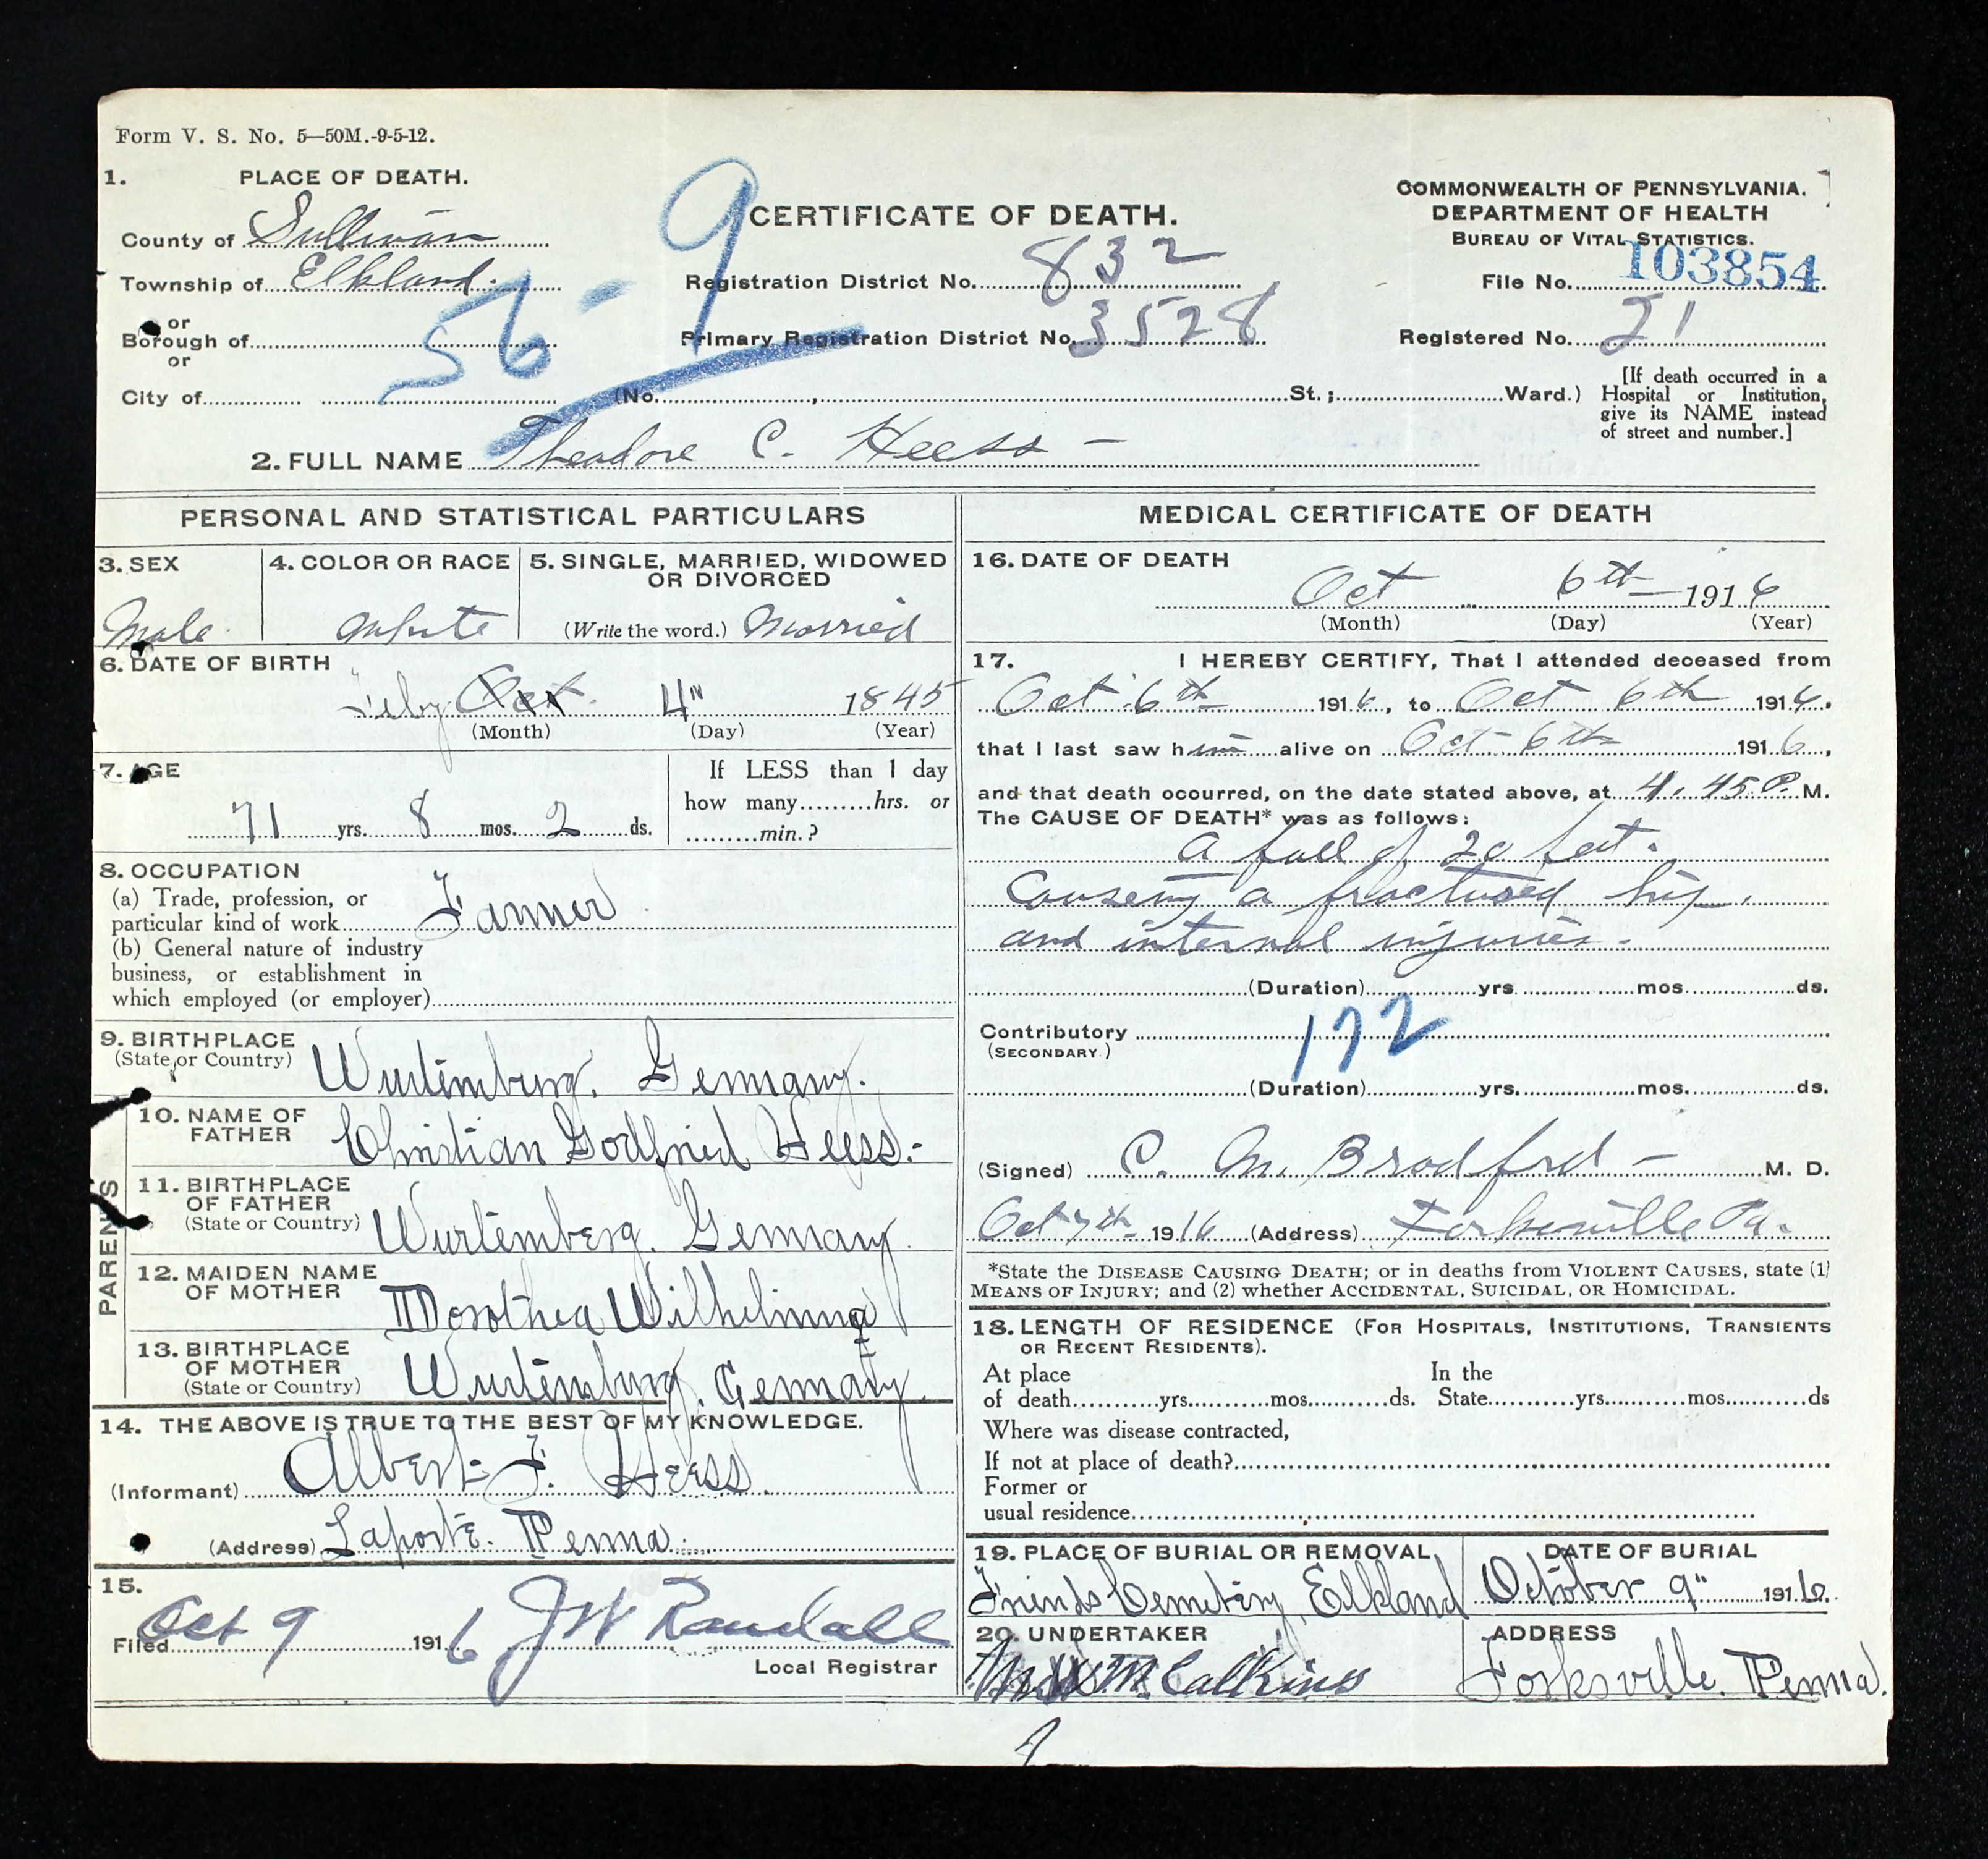 Form V. S. No. 5—50M.-9-5-12.
1. PLACE OF DEATH.
County of Sullivan
Township of Elkland.
or
Borough of
or
City of
56-9
CERTIFICATE OF DEATH.
Registration District No. 832
Primary Registration District No. 3528
(No. , St.; Ward.)
COMMONWEALTH OF PENNSYLVANIA.
DEPARTMENT OF HEALTH
BUREAU OF VITAL STATISTICS.
File No. 103854
Registered No. 21
[If death occurred in a
Hospital or Institution,
give its NAME instead
of street and number.]
2. FULL NAME Theodore C. Heess —
PERSONAL AND STATISTICAL PARTICULARS
3. SEX
Male
4. COLOR OR RACE
White
5. SINGLE, MARRIED, WIDOWED
OR DIVORCED
(Write the word.) Married
6. DATE OF BIRTH
Feby Oct. 4" 1845
(Month) (Day) (Year)
7. AGE
71 yrs. 8 mos. 2 ds.
If LESS than 1 day
how many hrs. or
min.?
8. OCCUPATION
(a) Trade, profession, or
particular kind of work Farmer
(b) General nature of industry
business, or establishment in
which employed (or employer)
9. BIRTHPLACE
(State or Country) Wurtemburg. Germany.
PARENTS
10. NAME OF
FATHER Christian Godfried Heess.-
11. BIRTHPLACE
OF FATHER
(State or Country) Wurtemberg. Germany.
12. MAIDEN NAME
OF MOTHER Dorothea Wilhelmina
13. BIRTHPLACE
OF MOTHER
(State or Country) Wurtemburg. Germany.
14. THE ABOVE IS TRUE TO THE BEST OF MY KNOWLEDGE.
(Informant) Albert F. Heess.
(Address) Laporte. Penna.
15.
Filed Oct 9 1916 J W Randall
Local Registrar
MEDICAL CERTIFICATE OF DEATH
16. DATE OF DEATH
Oct 6th 1916
(Month) (Day) (Year)
17. I HEREBY CERTIFY, That I attended deceased from
Oct. 6th 1916, to Oct 6th 1916.
that I last saw him alive on Oct 6th 1916,
and that death ocurred, on the date stated above, at 4.45 P. M.
The CAUSE OF DEATH* was as follows:
A fall of 20 feet.
Causeing a fractured hip.
and internal injuries.-
(Duration) yrs mos ds.
Contributory 172
(SECONDARY.)
(Duration) yrs. mos ds.
(Signed) C. M. Bradford — M. D.
Oct 7th 1916 (Address) Forksville Pa.
*State the DISEASE CAUSING DEATH; or in deaths from VIOLENT CAUSES, state (1)
MEANS OF INJURY; and (2) whether ACCIDENTAL, SUICIDAL, OR HOMICIDAL.
18. LENGTH OF RESIDENCE (FOR HOSPITALS, INSTITUTIONS, TRANSIENTS
OR RECENT RESIDENTS).
At place In the
of death yrs. mos. ds. State yrs. mos. ds
Where was disease contracted,
If not at place of death?
Former or
usual residence
19. PLACE OF BURIAL OR REMOVAL
Friends Cemetery, Elkland
DATE OF BURIAL
October 9" 1916.
20. UNDERTAKER
M. Calkins
ADDRESS
Forksville. Penna.